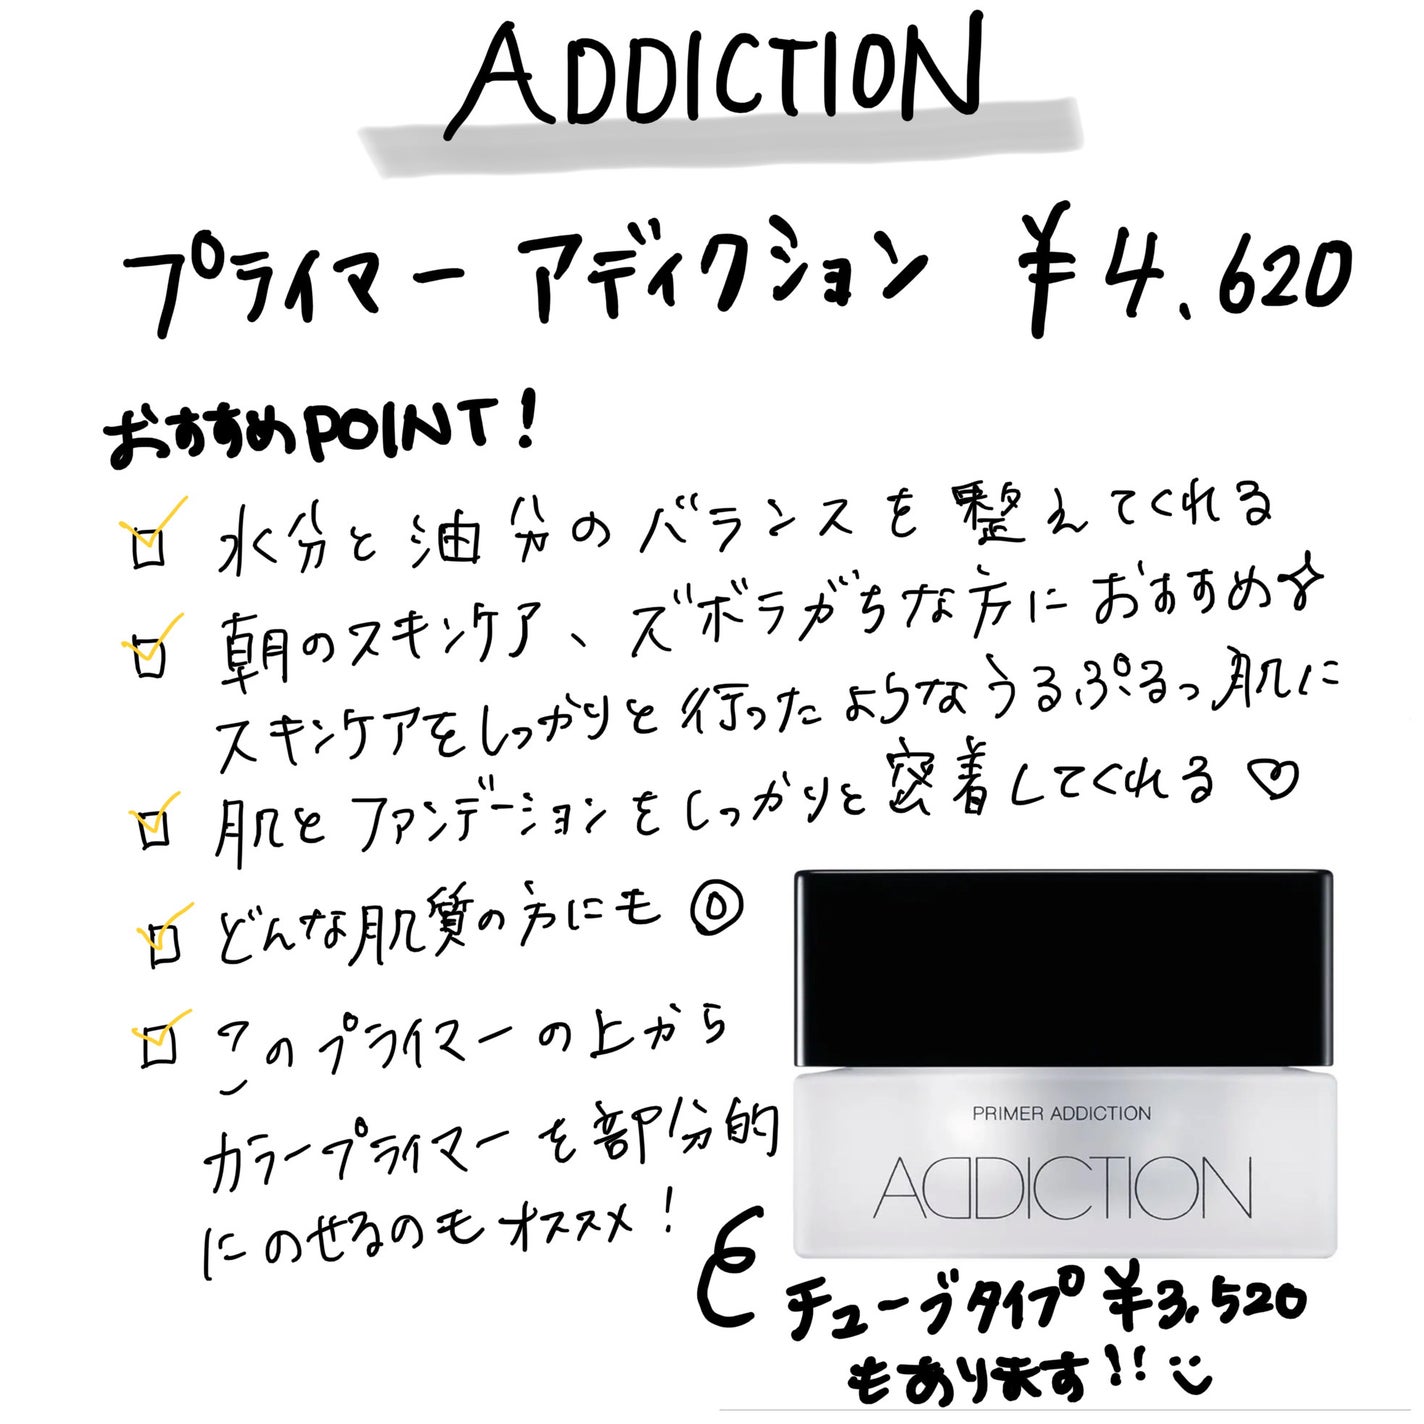 ADDICTION
プライマー アディクション ¥4,620
おすすめPOINT!
水分と油分のバランスを整えてくれる
朝のスキンケア、ズボラがちな方におすすめ✧
スキンケアをしっかりと行ったようなうるぷるっ肌に
肌とファンデーションをしっかりと密着してくれる♡
どんな肌質の方にも◎
このプライマーの上から
カラープライマーを部分的
にのせるのもオススメ!
PRIMER ADDICTION
ADDICTION
チューブタイプ ¥3,520
もあります!!